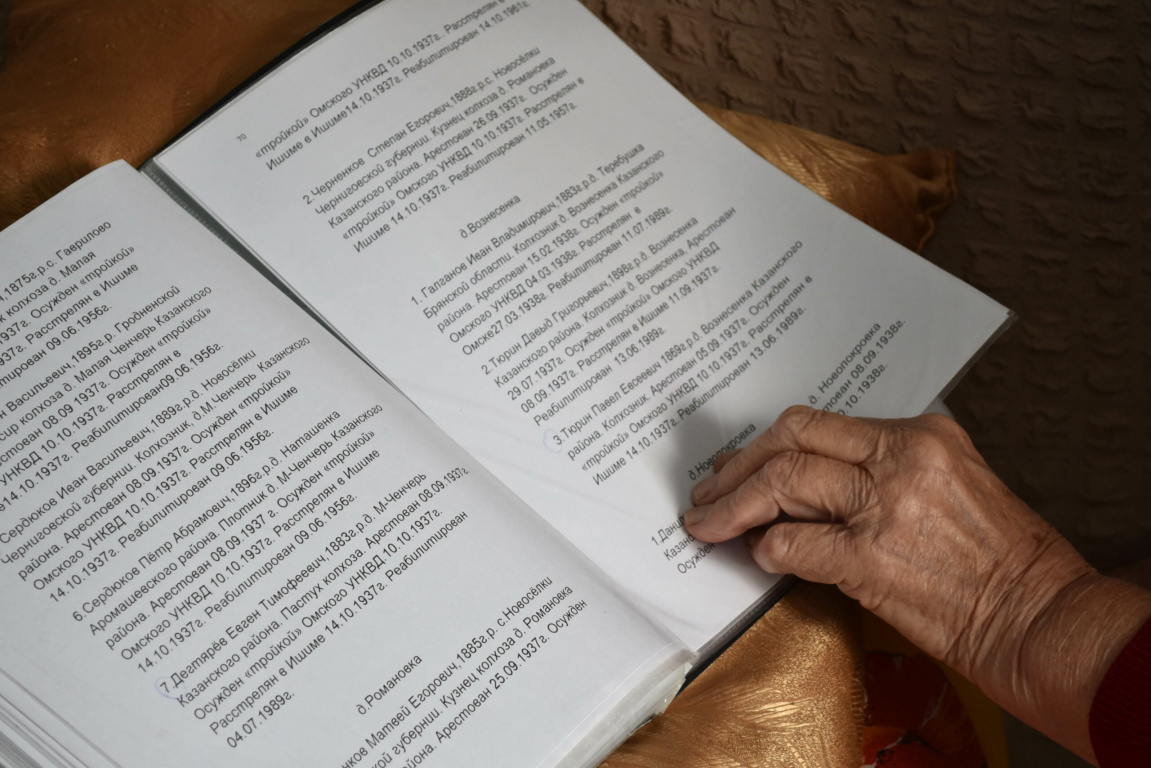 1875г.р.с. Гаврилово
к колхоза д. Малая
1937г. Осужден «тройкой»
1937г. Расстрелян в Ишиме
09.06.1956г.
Васильевич, 1895г.р. Гродненской
колхоза д. Малая Ченчерь Казанского
08.09 1937г. Осужден «тройкой»
УНКВД 10.10 1937г. Расстрелян в
14.10.1937г. Реабилитирован09.06.1956г.
Сердюков Иван Васильевич,1889г.р.д. Новосёлки
Черниговской губернии. Колхозник, д.М.Ченчерь Казанского
района. Арестован 08.09.1937г. Осужден «тройкой»
Омского УНКВД 10.10.1937г. Расстрелян в Ишиме
14.10.1937г. Реабилитирован 09.06.1956г.
6.Сердюков Пётр Абрамович,1896г.р.д. Наташенка
Аромашевского района. Плотник д. М-Ченчерь Казанского
района. Арестован 08.09.1937 г. Осужден «тройкой»
Омского УНКВД 10.10.1937г. Расстрелян в Ишиме
14.10.1937г. Реабилитирован 09.06.1956г.
7.Дегтярёв Евген Тимофеевич,1883г.р.д. М-Ченчерь
Казанского района. Пастух колхоза. Арестован 08.09.1937г.
Осужден «тройкой» Омского УНКВД 10.10.1937г.
Расстрелян в Ишиме 14.10.1937г. Реабилитирован
04.07.1989г.
д.Романовка
Матвей Егорович,1885г.р. с.Новосёлки
губернии. Кузнец колхоза д. Романовка
Арестован 25.09.1937г. Осужден
70
«тройкой» Омского УНКВД 10.10.1937г.. Расстрелян в
Ишиме в Ишиме14.10.1937г. Реабилитирован 14.10.1961г.
2.Черненков Степан Егорович,1888г.р.с. Новосёлки
Черниговской губернии. Кузнец колхоза д. Романовка
Казанского района. Арестован 26.09.1937г. Осужден
«тройкой» Омского УНКВД 10.10.1937г. Расстрелян в
Ишиме 14.10.1937г. Реабилитирован 11.05.1957г.
д.Вознесенка
1. Галганов Иван Владимирович,1883г.р.д. Теребушка
Брянской области. Колхозник д. Вознесенка Казанского
района. Арестован 15.02.1938г. Осужден «тройкой»
Омского УНКВД 04.03.1938г. Расстрелян в
Омске27.03.1938г. Реабилитирован 11.07.1989г.
2.Тюрин Давыд Григорьевич,1898г.р.д. Вознесенка
Казанского района. Колхозник д. Вознесенка. Арестован
29.07.1937г. Осужден «тройкой» Омского УНКВД
08.09.1937г. Расстрелян в Ишиме 11.09.1937г.
Реабилитирован 13.06.1989г.
3.Тюрин Павел Евсеевич,1869г.р.д. Вознесенка Казанского
района. Колхозник. Арестован 05.09.1937г. Осужден
«тройкой» Омского УНКВД 10.10.1937г. Расстрелян в
Ишиме 14.10.1937г. Реабилитирован 13.06.1989г.
д.Новопокровка
д. Новопокровка
08.09.1938г.
.10.1938г.